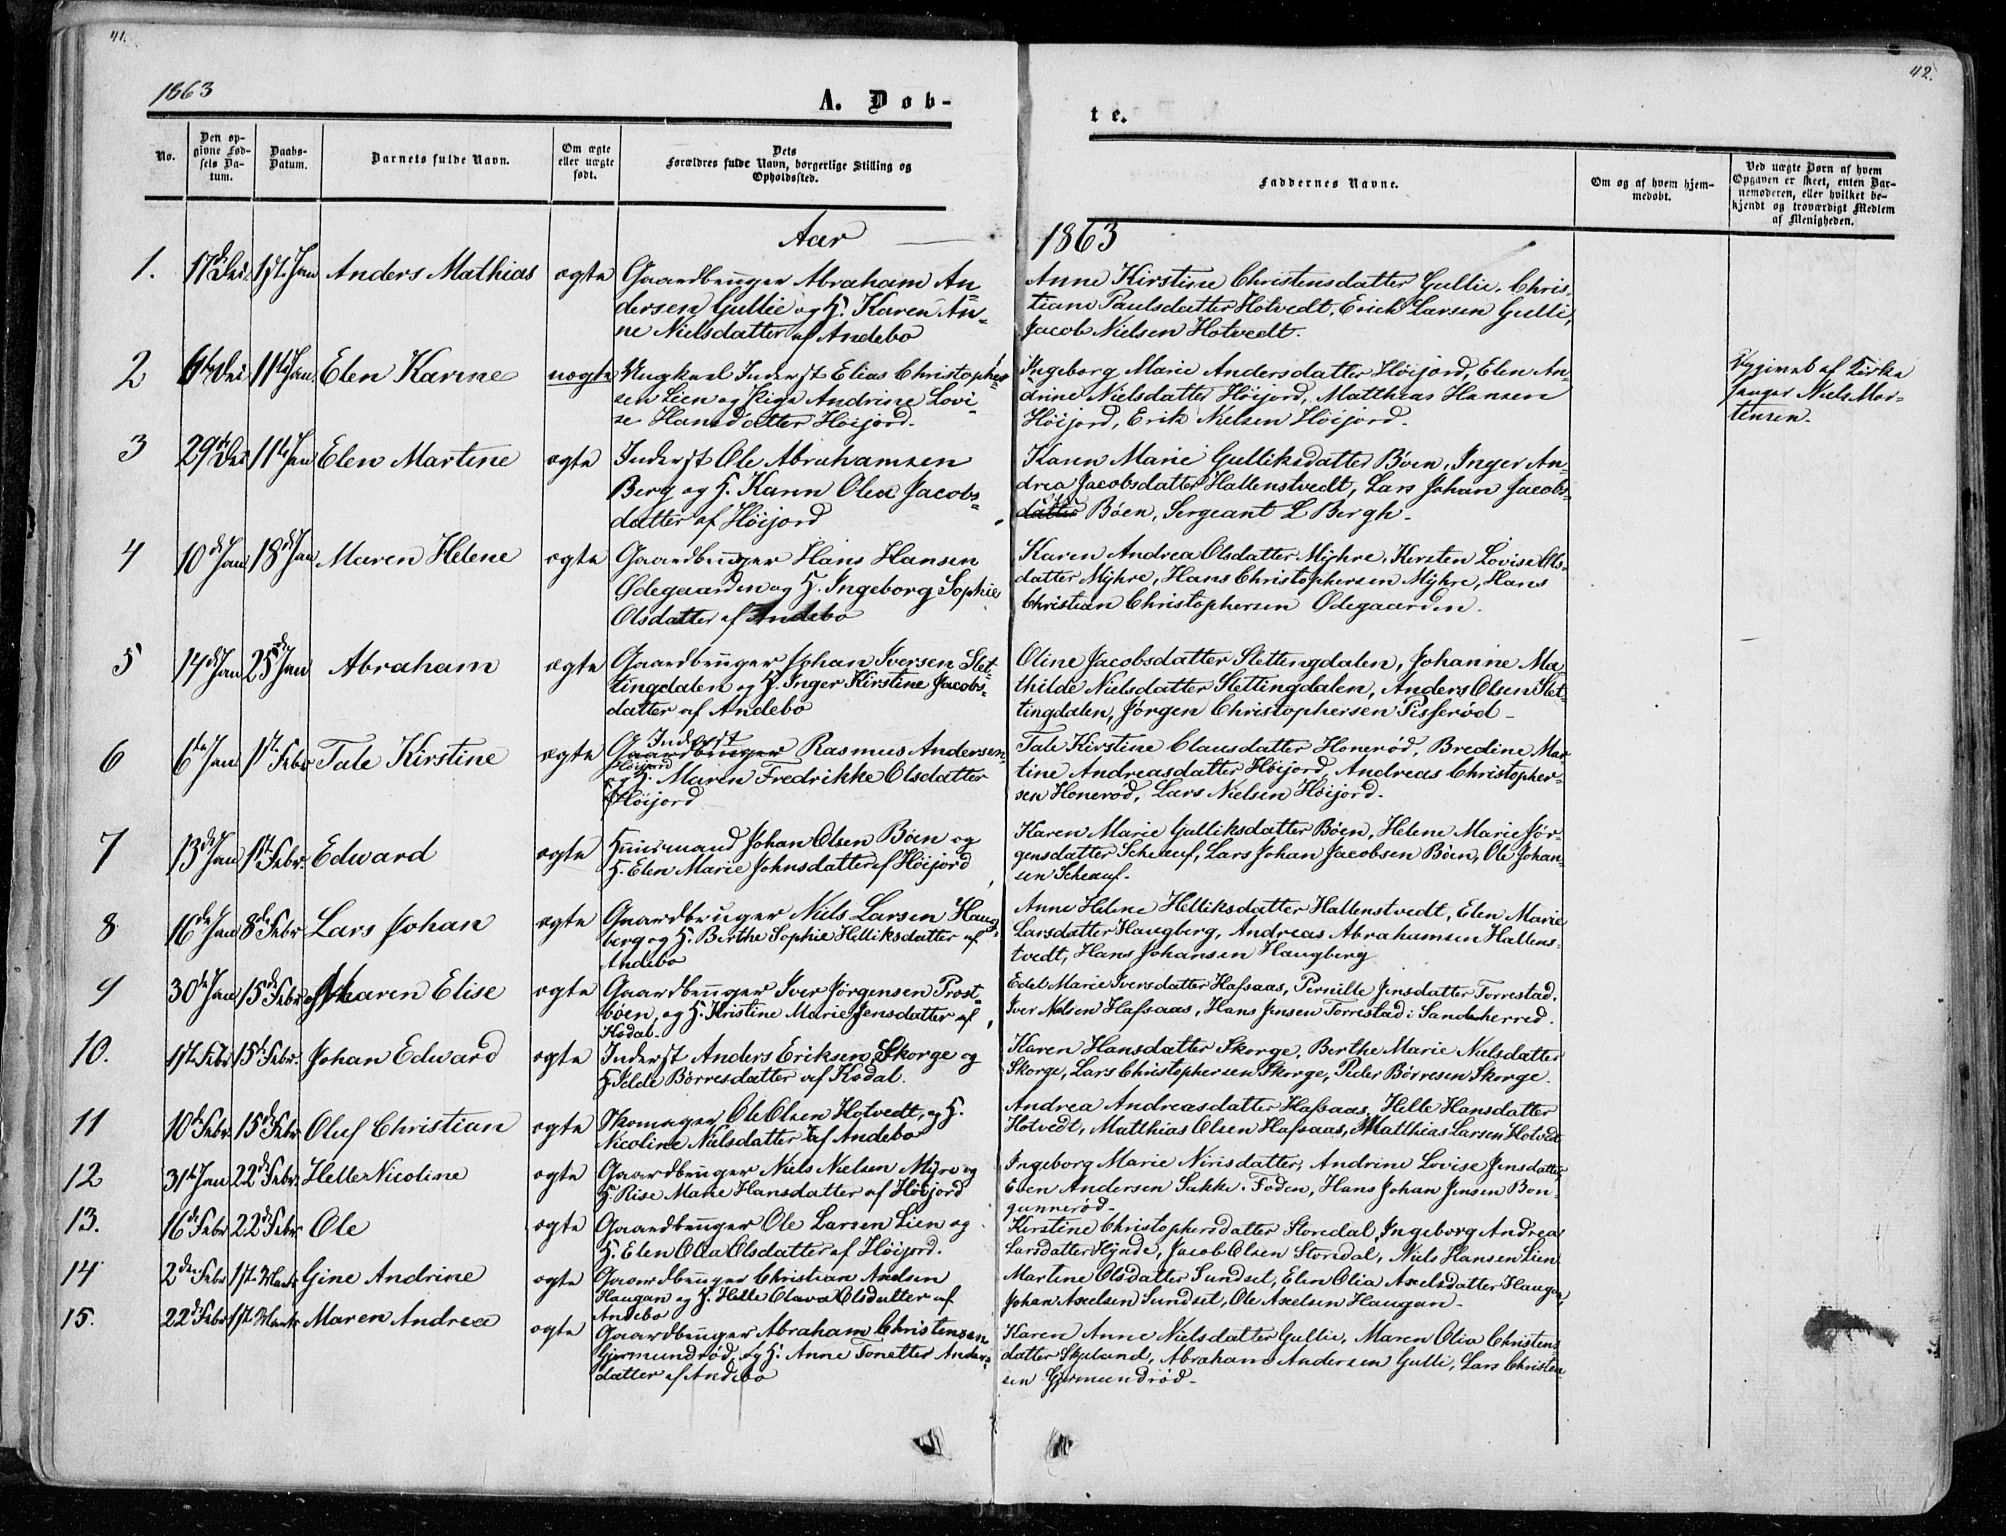 41.
42.
1863
A. Døb-
te.
No.
Den op-
givne Fød-
sels Da-
tum.
Daabs-
Datum.
Barnets fulde Navn.
Om ægte
eller uægte
født.
Dets
Forældres fulde Navn, borgerlige Stilling og
Opholdssted.
Faddernes Navne.
Om og af hvem hjem-
medøbt.
Ved uægte Børn af hvem
Opgaven er skeet, enten Bar-
nemoderen, eller hvilket be-
kjendt og troværdigt Medlem
af Menigheden.
Aar
1863
1. 17de Des. 1st. Jan Anders Mathias ægte Gaardbruger Abraham An-
dersen Gullie og H. Karen An-
ne Nielsdatter af Andebo
Anne Kirstine Christensdatter Gullie, Chris-
tiane Paulsdatter Hotvedt, Erick Larsen Gulli,
Jacob Nielsen Hotvedt.
2 6te Des 11te Jan. Elen Karine uægte Ungkarl Inderst Elias Christopher-
sen Lien og Pige Andrine Lovi-
se Hansdatter Höijord.
Ingeborg Marie Andersdatter Höijord, Elen An-
drine Nielsdatter Höijord, Matthias Hansen
Höijord, Erik Nielsen Höijord.
Opgivet af Kirke
sanger Niels Mor-
tensen.
3 29de Des 11te Jan Elen Martine ægte Inderst Ole Abrahamsen
Berg og H. Karen Olea Jacobs-
datter af Höijord
Karen Marie Gulliksdatter Böen, Inger An-
drea Jacobsdatter Hallenstvedt, Lars Johan Jacob-
datter sen Böen, Sergeant L Bergh.
4 10de Jan 18de Jan Maren Helene ægte Gaardbruger Hans Hansen
Ødegaarden og H. Ingeborg Sophie
Olsdatter af Andebo
Karen Andrea Olsdatter Myhre, Kersten Lovise Ols-
datter Myhre, Hans Christophersen Myhre, Hans
Christian Christophersen Ødegaarden.
5 14de Jan 25de Jan Abraham ægte Gaardbruger Johan Iversen Slet-
tingdalen og H. Inger Kirstine Jacobs-
datter af Andebo
Oline Jacobsdatter Slettingdalen, Johanne Ma-
thilde Nielsdatter Slettingdalen, Anders Olsen Slet-
tingdalen, Jörgen Christophersen Pisserød
6 6te Jan 1ste Febr Tale Kirstine ægte Inderst
Gaardbruger Rasmus Andersen
Höijord
og H. Maren Fredrikke Olsdatter
Höijord
Tale Kirstine Clausdatter Honerød, Bredine Mar-
tine Andreasdatter Höijord, Andreas Christopher-
sen Honerød, Lars Nielsen Höijord.
7 13de Jan 1ste Febr. Edward ægte Huusmand Johan Olsen Böen og
H. Elen Marie Johnsdatter af Höijord
Karen Marie Gulliksdatter Böen, Helene Marie Jör-
gensdatter Scheauf, Lars Johan Jacobsen Böen, Ole Johan-
sen Scheauf.
8 16de Jan 8de Febr Lars Johan ægte Gaardbruger Niels Larsen Haug-
berg og H. Berthe Sophie Helliksdatter af
Andebo
Anne Helene Helliksdatter Hallenstvedt, Elen Marie
Larsdatter Haugberg, Andreas Abrahamsen Hallens-
tvedt, Hans Johansen Haugberg
9 30de Jan 15de Febr Maren Elise ægte Gaardbruger Iver Jörgensen Prost-
böen, og H. Kristine Marie Jensdatter af
Kodal.
Edel Marie Iversdatter Hafsaas, Pernille Jensdatter Torrestad.
Iver Nilsen Hafsaas, Hans Jensen Torrestad i Sandeherred.
10. 1ste Febr 15de Febr. Johan Edward ægte Inderst Anders Eriksen Skorge og
H. Ilde Börresdatter af Kodal.
Karen Hansdatter Skorge, Berthe Marie Nielsdatter
Skorge, Lars Christophersen Skorge, Peder Börresen Skorge.
11 10de Febr. 15de Febr. Oluf Christian ægte Skomager Ole Olsen Hotvedt, og H.
Nicoline Nielsdatter af Andebo
Andrea Andreasdatter Hafsaas, Helle Hansdatter
Hotvedt, Matthias Olsen Hafsaas, Matthias Larsen Hotvedt
12 31te Jan 22de Febr. Helle Nicoline ægte Gaardbruger Niels Nielsen Myre og
H. Rise Marie Hansdatter af Höijord
Ingeborg Marie Nirisdatter, Andrine Lovise Jensdatter,
Even Andersen Sukke-Foden, Hans Johan Jensen Bon-
gunnerød.
13. 16de Febr 22de Febr. Ole ægte Gaardbruger Ole Larsen Lien og
H. Elen Olea Olsdatter af Höijord.
Kirstine Christophersdatter Storedal, Ingeborg Andrea
Larsdatter Hynde, Jacob Olsen Storedal, Niels Hansen Lien
14 2den Febr 1ste Marts Gine Andrine ægte Gaardbruger Christian Axelsen
Haugan og H. Helle Olava Olsdatter af
Andebo
Martine Olsdatter Sundset, Elen Olia Axelsdatter Haugan,
Johan Axelsen Sundset, Ole Axelsen Haugan.
15. 22de Febr 1ste Marts Maren Andrea ægte Gaardbruger Abraham Christensen
Gjermundrød, og H. Anne Tonette Anders-
datter af Andebo
Karen Anne Nielsdatter Gullie, Maren Olia Christens
datter Skjeland, Abraham Andersen Gulli, Lars Christen
sen Gjermundrød.